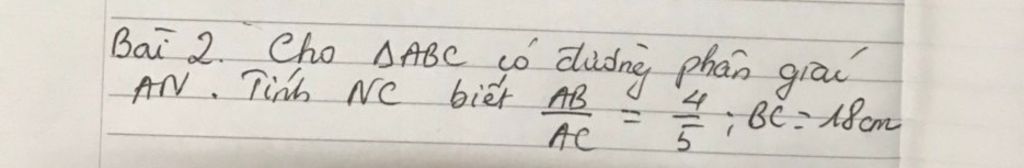 Bài 2. Cho ΔABC có đường phân giác
AN. Tính NC biết AB/AC = 4/5; BC = 18cm